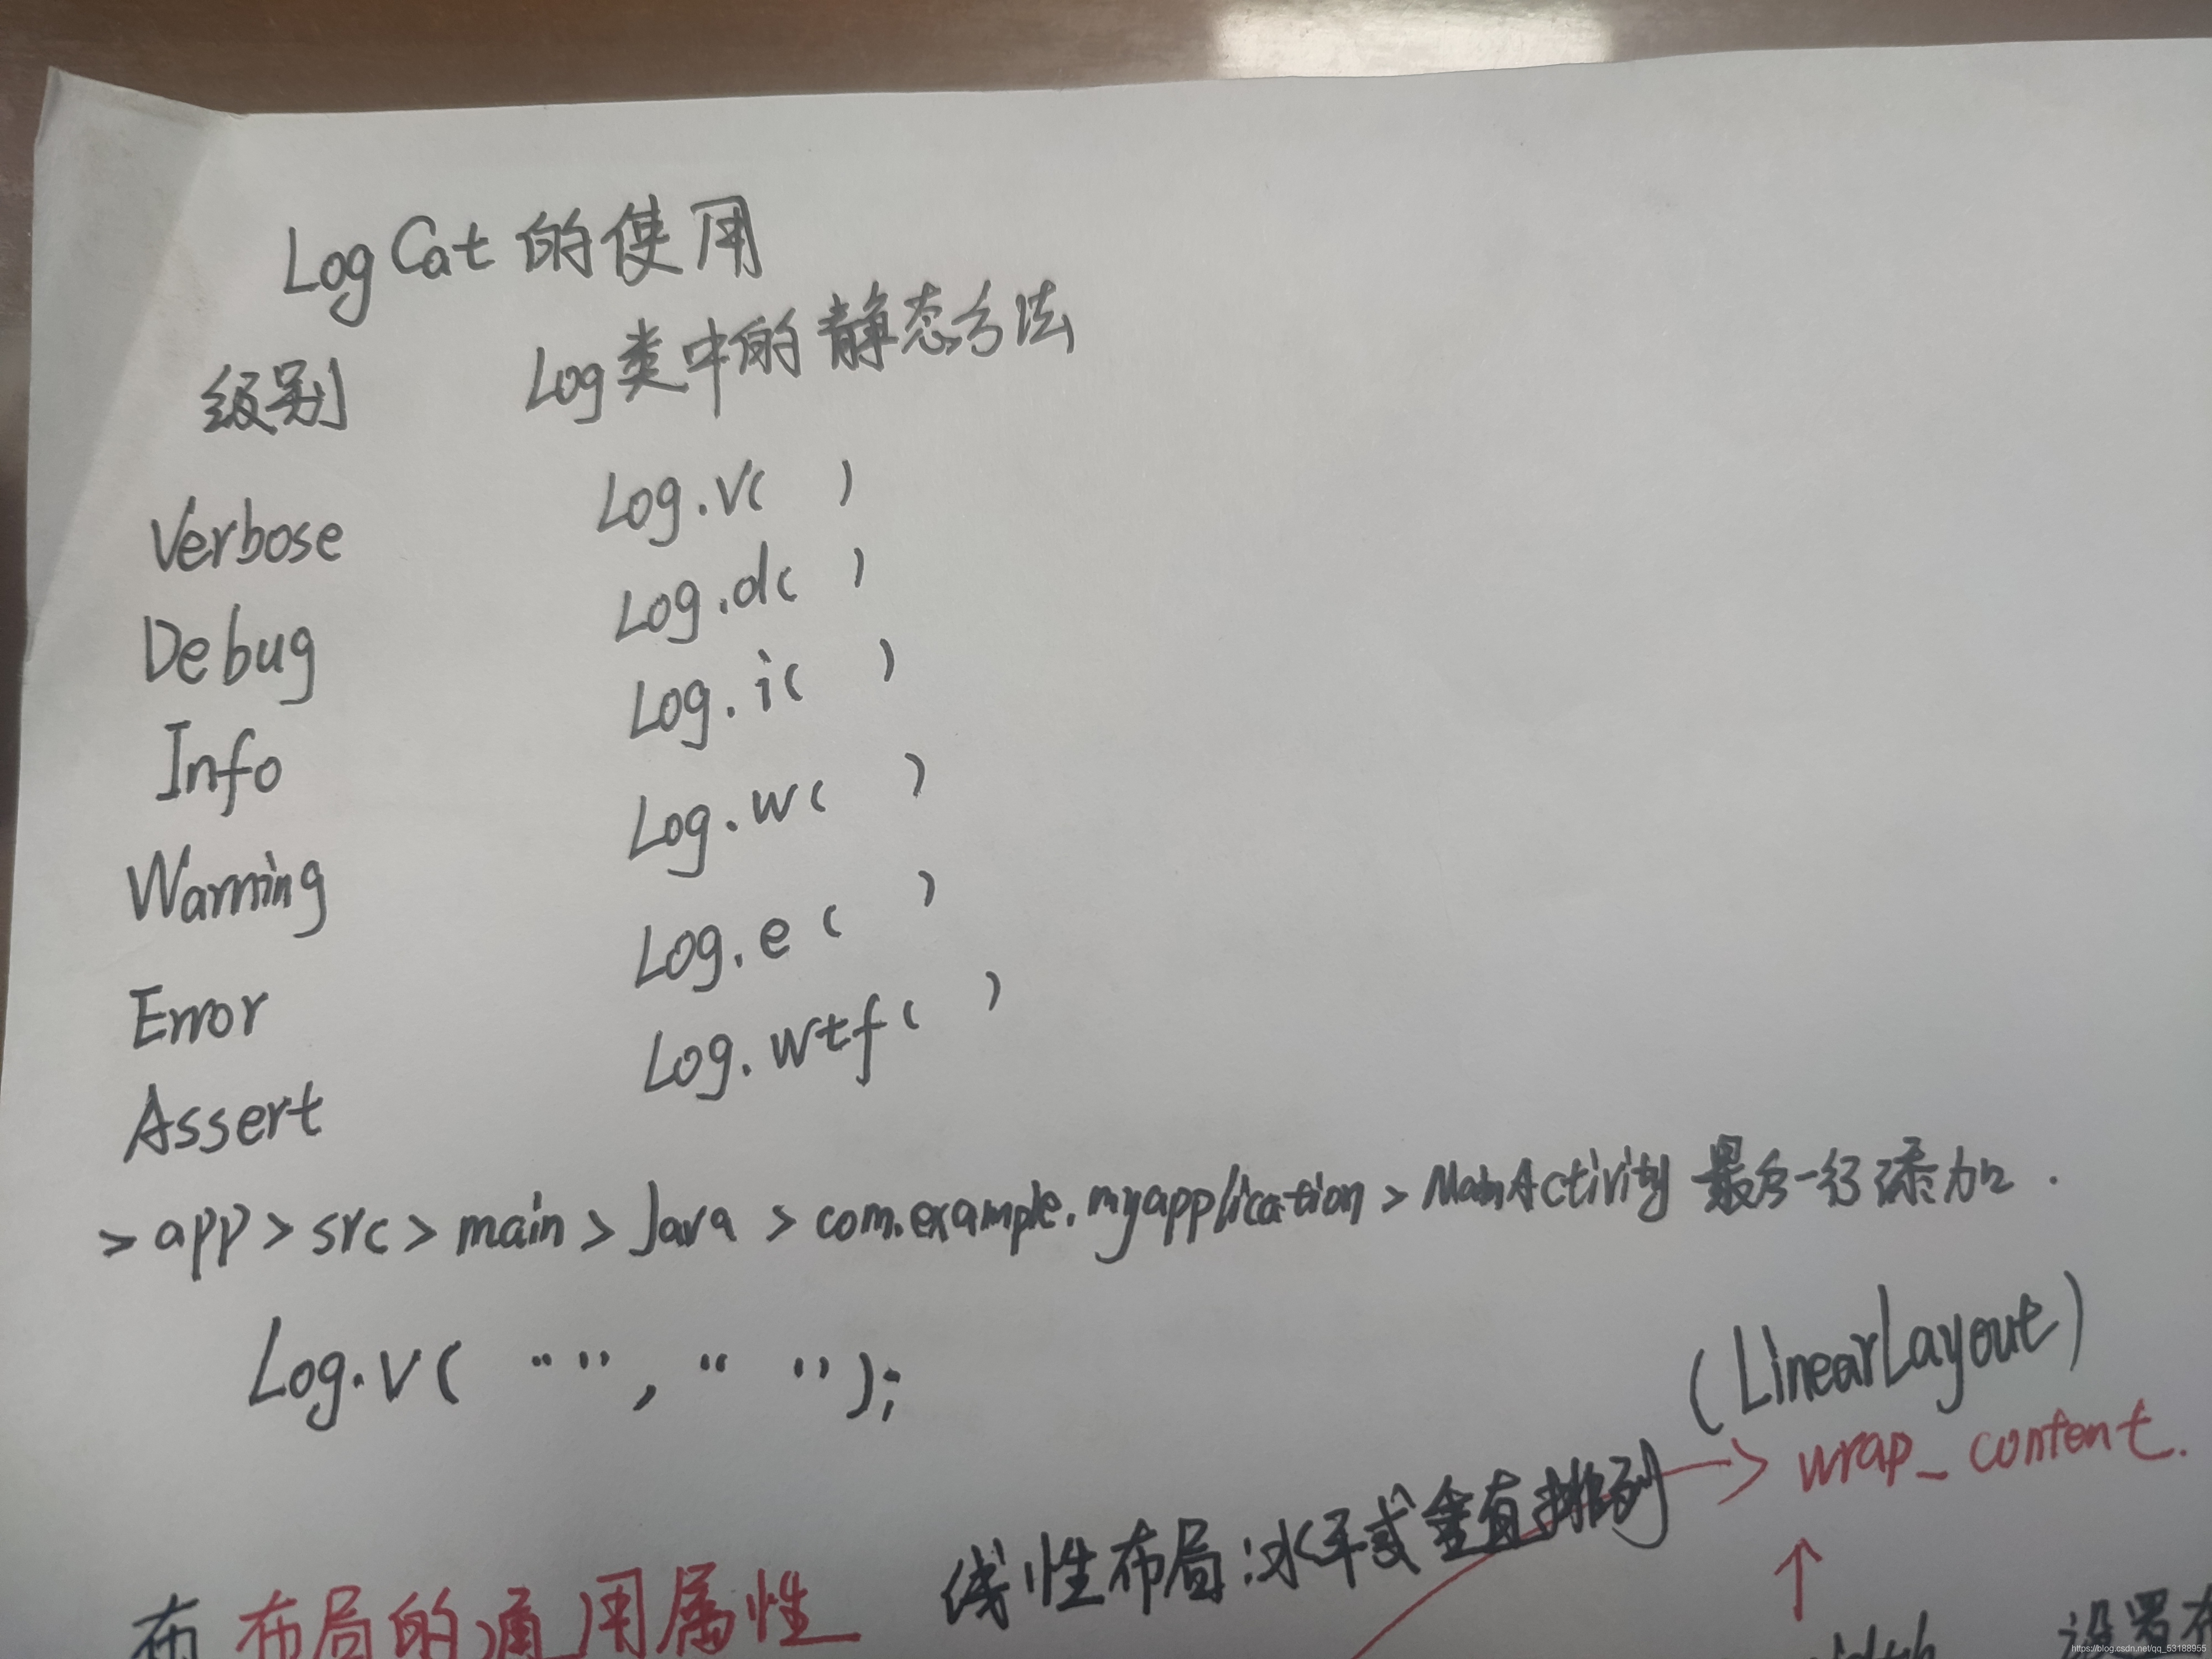 LogCat 的使用
级别 Log类中的静态方法
Verbose Log.v( )
Debug Log.d( )
Info Log.i( )
Warning Log.w( )
Error Log.e( )
Assert Log.wtf( )
> app > src > main > Java > com.example.myapplication > MainActivity 最后一行添加.
Log.v( “”, “ ”);
(LinearLayout)
线性布局:水平或垂直排列 → wrap_content.
↑
布 布局的通用属性
设置布
https://blog.csdn.net/qq_53188955